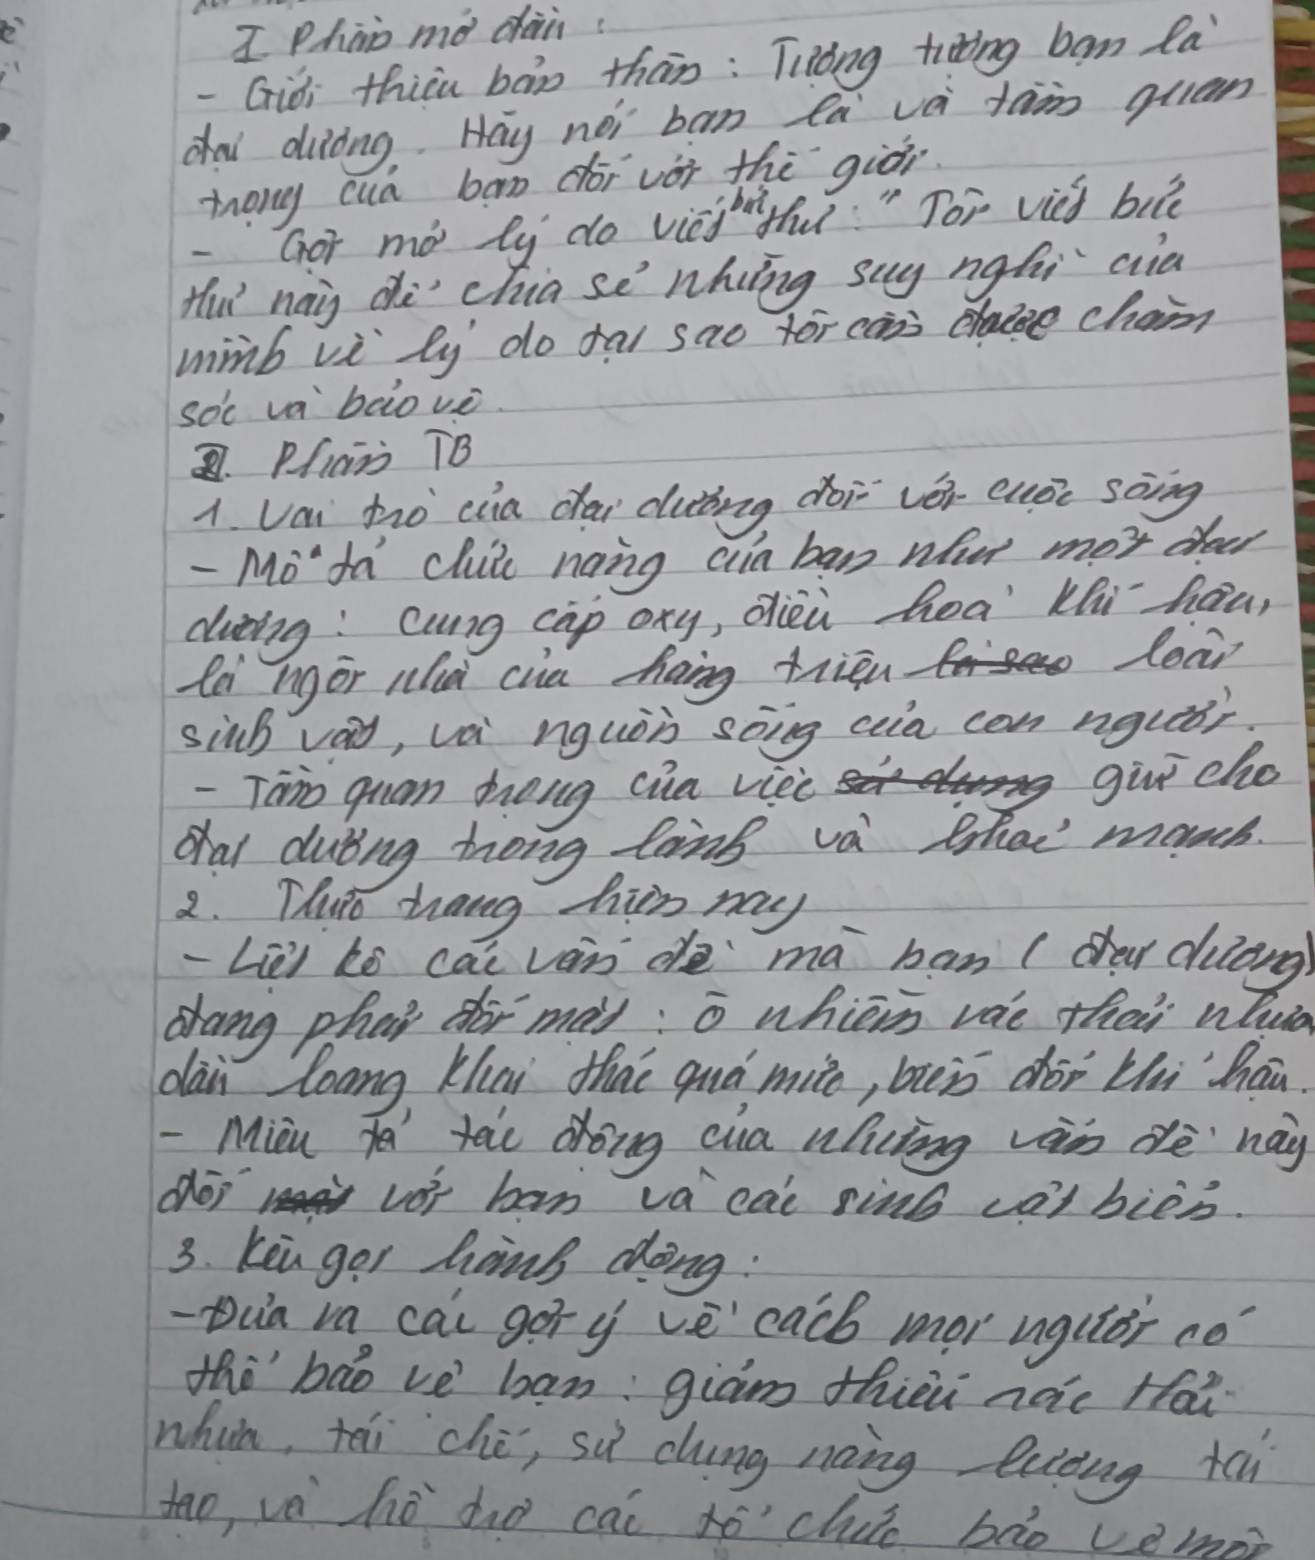 I Phần mở đầu:
- Giới thiệu bản thân: Tưởng tượng bạn là
đại dương. Hãy nói bạn là và tầm quan
trọng của bạn đối với thế giới.
- Gợi mở lý do viết bức thư: "Tôi viết bức
thư này để chia sẻ những suy nghĩ của
mình về lý do tại sao tôi cần được chăm
sóc và bảo vệ.
II. Phần TB
1. Vai trò của đại dương đối với cuộc sống
- Mô tả chức năng của bạn như một đại
dương: Cung cấp oxy, điều hoà khí hậu,
là ngôi nhà của hàng triệu loài
sinh vật, và nguồn sống của con người.
- Tầm quan trọng của việc giữ cho
đại dương trong lành và khoẻ mạnh.
2. Thực trạng hiện nay
- Liệt kê các vấn đề mà bạn (đại dương)
đang phải đối mặt: ô nhiễm rác thải nhựa
dầu loang khai thác quá mức, biến đổi khí hậu.
- Miêu tả tác động của những vấn đề này
đối với bạn và các sinh vật biển.
3. Kêu gọi hành động:
- Đưa ra các gợi ý về cách mọi người có
thể bảo vệ bạn: giảm thiểu rác thải
nhựa, tái chế, sử dụng năng lượng tái
tạo, và hỗ trợ các tổ chức bảo vệ môi